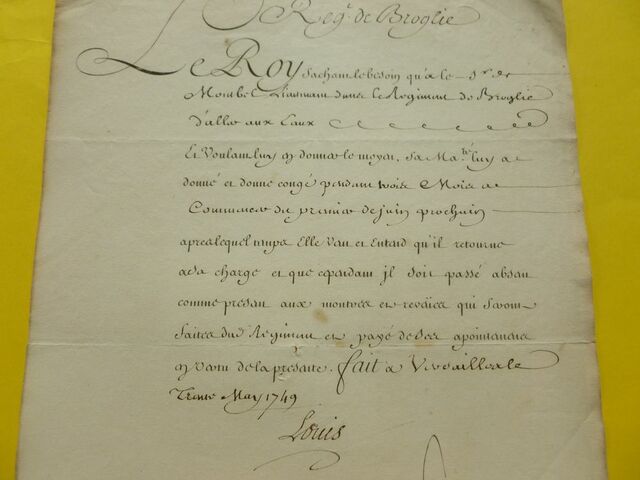 Reg.t de Broglie
Le Roy sachant le besoin qu'a le S.r de
Montbel Lieutenant dans le Regiment de Broglie
d'aller aux Eaux
Et Voulant luy en donner le moyen, sa Ma.té luy a
donné et donne congé pendant trois Mois a
Commencer du premier de juin prochain
apres lequel temps Elle Veut et Entend qu'il retourne
a sa charge et que cependant jl soit passé absent
comme present aux montres et reveües qui seront
faites dud. Regiment et payé de ses apointemens
en vertu de la presente. fait a Versailles le
Trente May 1749
Louis